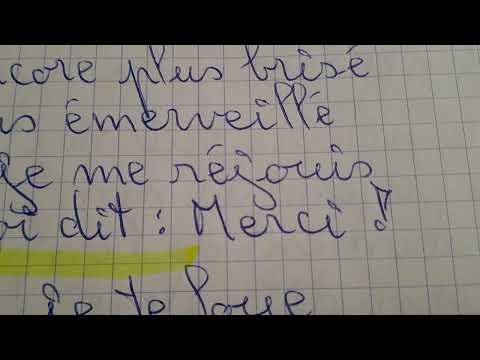 encore plus brisé
émerveillé
je me réjouis
dit : Merci !
je te loue